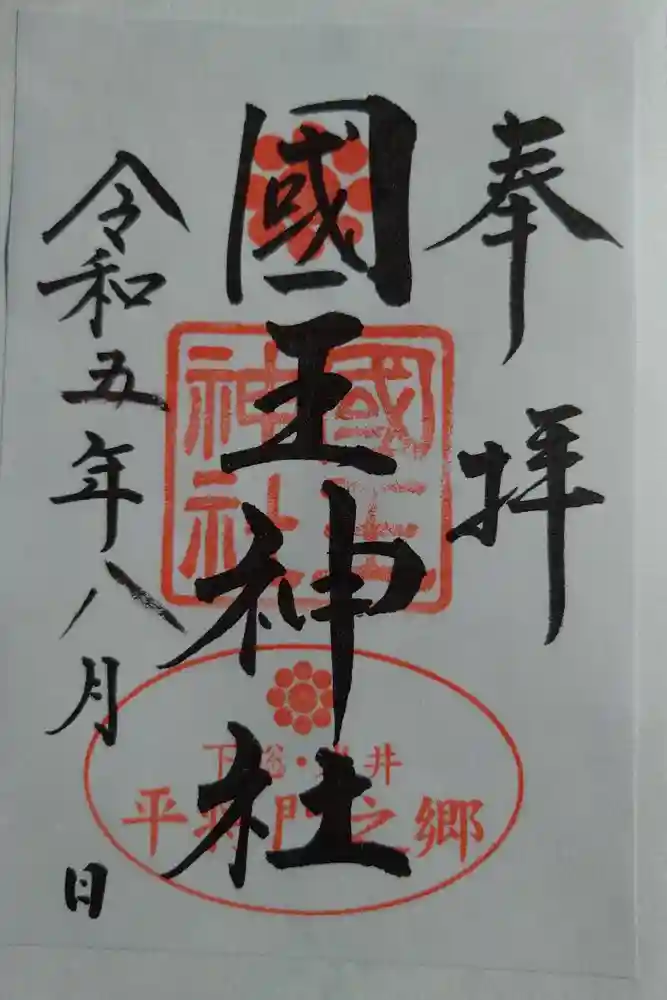 奉拝
國王神社
國王神社
下総・岩井
平将門之郷
令和五年八月 日